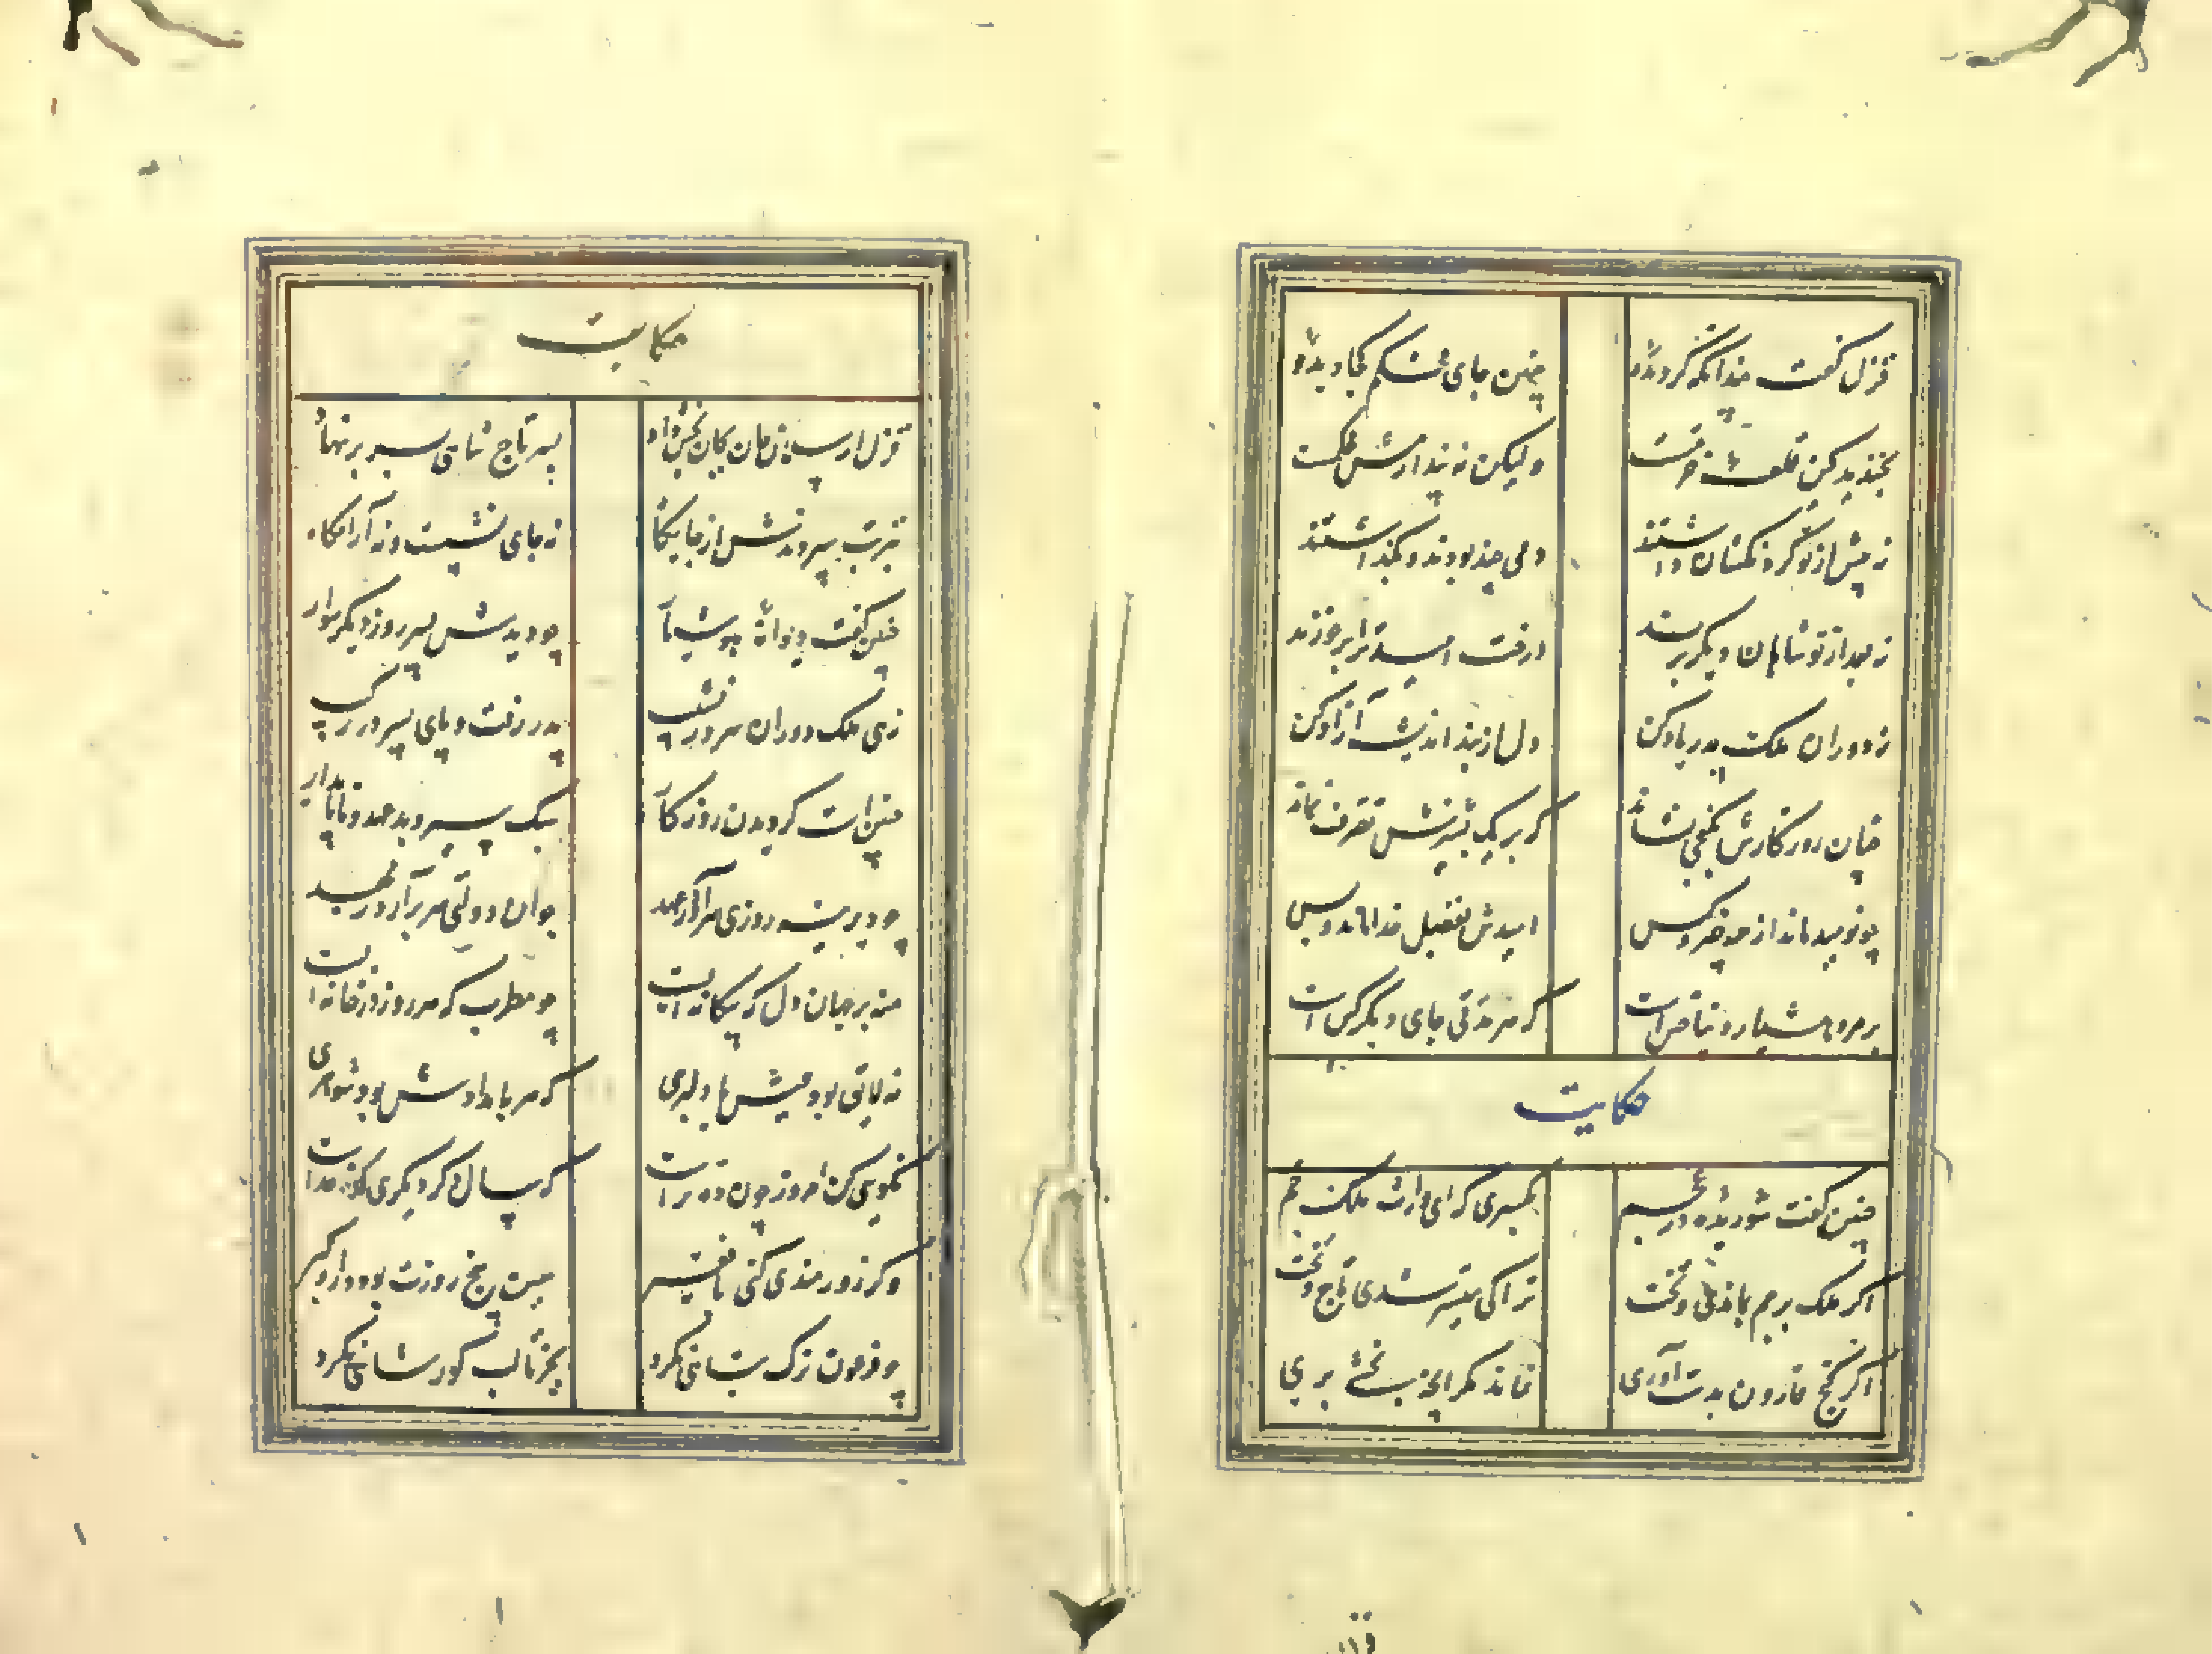 قزل گفت چندانکه گردیدهٔ
چنین جای محکم کجا دیدهٔ
بخندید کین قلعهٔ خرمست
ولیکن نه پندارمش محکمست
نه پیش از تو گردنکشان داشتند
دمی چند بودند و بگذاشتند
نه بعد از تو شاهان دیگر برند
درخت امید ترا بر خورند
ز دوران ملک پدر یاد کن
دل از بند اندیشه آزاد کن
چنان روزگارش بکنجی نشاند
که بر یک پشیزش تصرف نماند
چو نومید ماند از همه چیز و کس
امیدش بفضل خدا ماند و بس
بر مرد هشیار دنیا خس است
که هر مدتی جای دیگر کس است
حکایت
چنین گفت شوریدهٔ در عجم
بکسری که ای وارث ملک جم
اگر ملک بر جم بماندی و تخت
ترا کی میسر شدی تاج و تخت
اگر گنج قارون بدست آوری
نماند مگر آنچه بخشی بری
حکایت
قزل ارسلان جان بجان بخش داد
پسر تاج شاهی بسر بر نهاد
بتربت سپردندش از جایگاه
نه جای نشست و نه آرامگاه
چنین گفت دیوانهٔ هوشیار
چو دیدش پسر روز دیگر سوار
زهی ملک دوران سر در نشیب
پدر رفت و پای پسر در رکیب
چنین است گردیدن روزگار
سبک سیر و بد عهد و ناپایدار
چو دیرینه روزی سرآورد عهد
جوان دولتی سر برآرد ز مهد
منه بر جهان دل که بیگانه ایست
چو مطرب که هر روز در خانه ایست
نه لایق بود عیش با دلبری
که هر بامدادش بود شوهری
نکویی کن امروز چون ده تراست
که سال دگر دیگری کدخداست
وگر زورمندی کنی با فقیر
همین پنج روزت بود دار و گیر
چو فرعون ترک تباهی نکرد
بجز تا لب گور شاهی نکرد